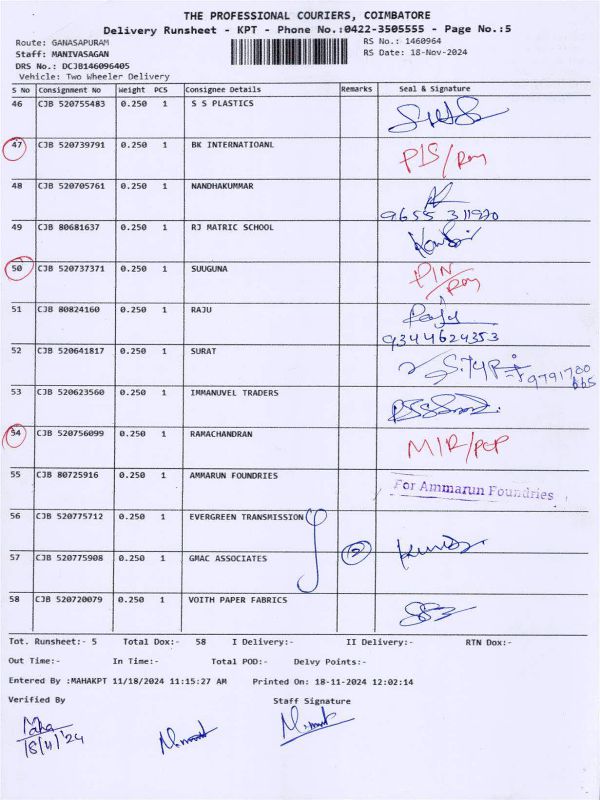 THE PROFESSIONAL COURIERS, COIMBATORE
Delivery Runsheet - KPT - Phone No.:0422-3505555 - Page No.:5
Route: GANASAPURAM RS No.: 1460964
Staff: MANIVASAGAN RS Date: 18-Nov-2024
DRS No.: DCJB146096405
Vehicle: Two Wheeler Delivery
S No Consignment No Weight PCS Consignee Details Remarks Seal & Signature
46 CJB 520755483 0.250 1 S S PLASTICS
47 CJB 520739791 0.250 1 BK INTERNATIOANL
48 CJB 520705761 0.250 1 NANDHAKUMMAR
9655 311970
49 CJB 80681637 0.250 1 RJ MATRIC SCHOOL
50 CJB 520737371 0.250 1 SUUGUNA
51 CJB 80824160 0.250 1 RAJU
9344624353
52 CJB 520641817 0.250 1 SURAT
53 CJB 520623560 0.250 1 IMMANUVEL TRADERS
54 CJB 520756099 0.250 1 RAMACHANDRAN
55 CJB 80725916 0.250 1 AMMARUN FOUNDRIES For Ammarun Foundries
56 CJB 520775712 0.250 1 EVERGREEN TRANSMISSION
57 CJB 520775908 0.250 1 GMAC ASSOCIATES
58 CJB 520720079 0.250 1 VOITH PAPER FABRICS
Tot. Runsheet:- 5 Total Dox:- 58 I Delivery:- II Delivery:- RTN Dox:-
Out Time:- In Time:- Total POD:- Delvy Points:-
Entered By :MAHAKPT 11/18/2024 11:15:27 AM Printed On: 18-11-2024 12:02:14
Verified By Staff Signature
Maha
18/11/24